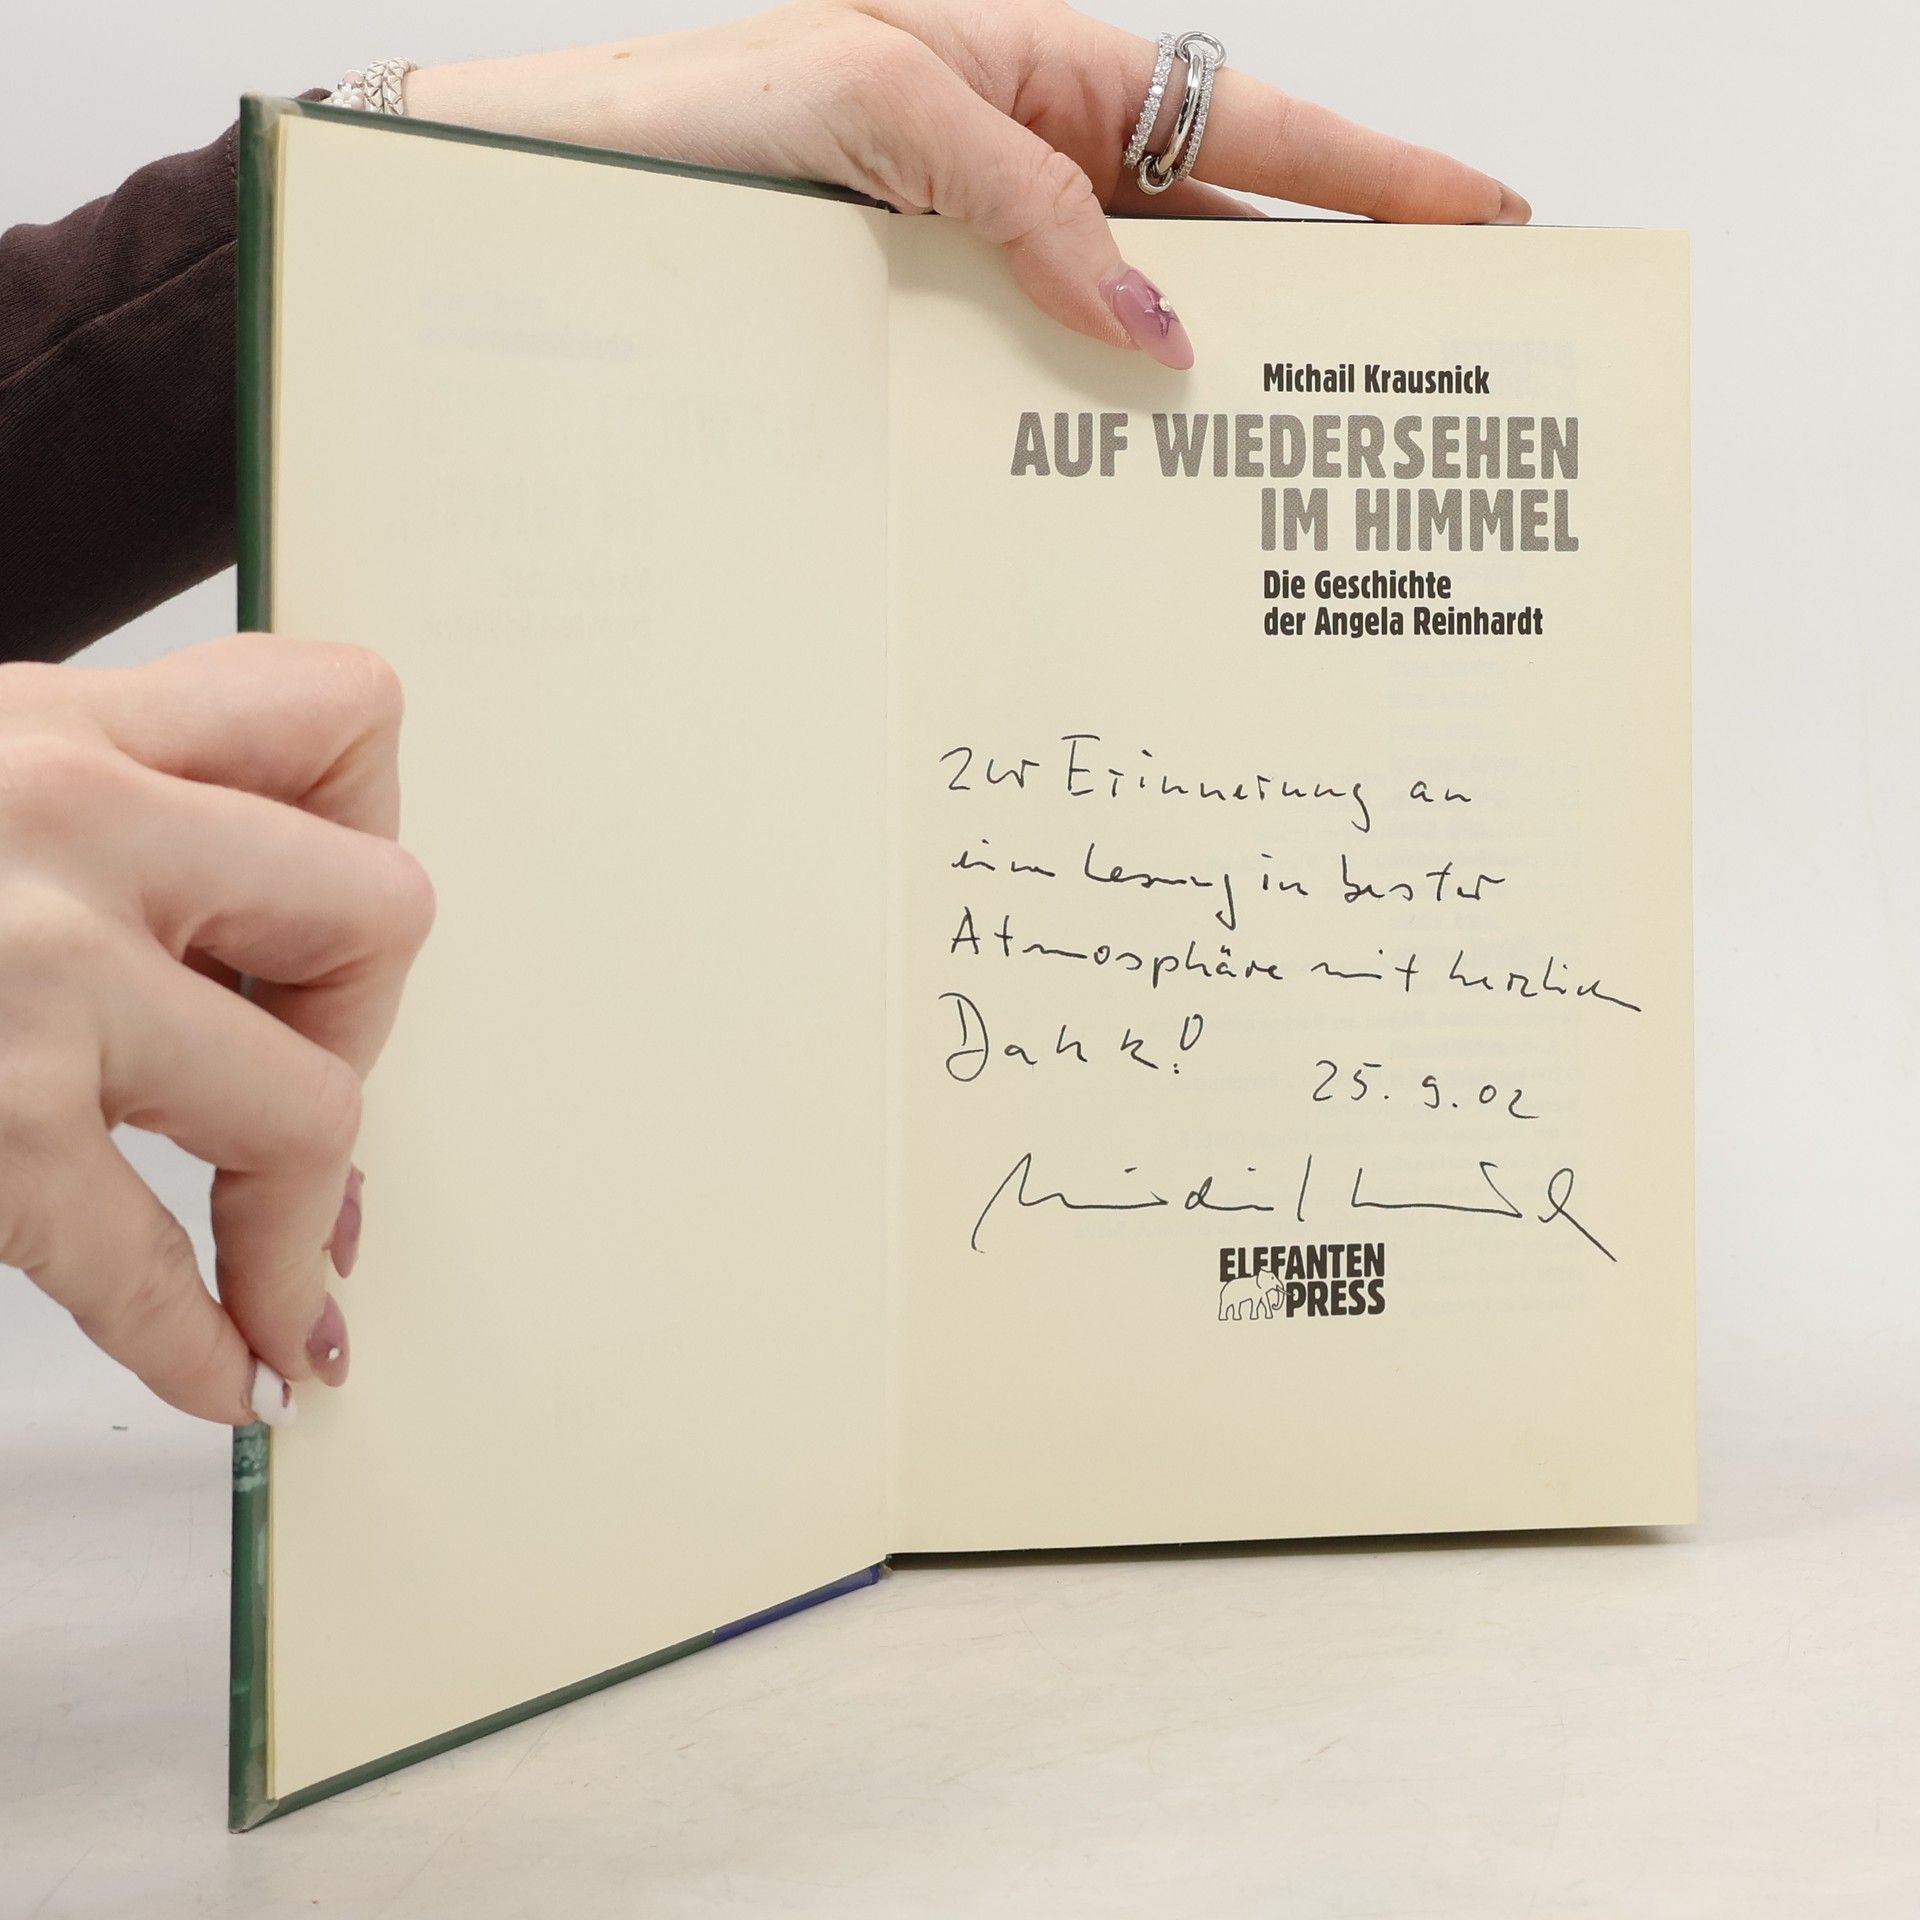 Michail Krausnick
AUF WIEDERSEHEN
IM HIMMEL
Die Geschichte
der Angela Reinhardt
Zur Erinnerung an
eine Lesung in bester
Atmosphäre mit herzlich
Dank!
25.9.02
Michail Krausnick
ELEFANTEN
PRESS